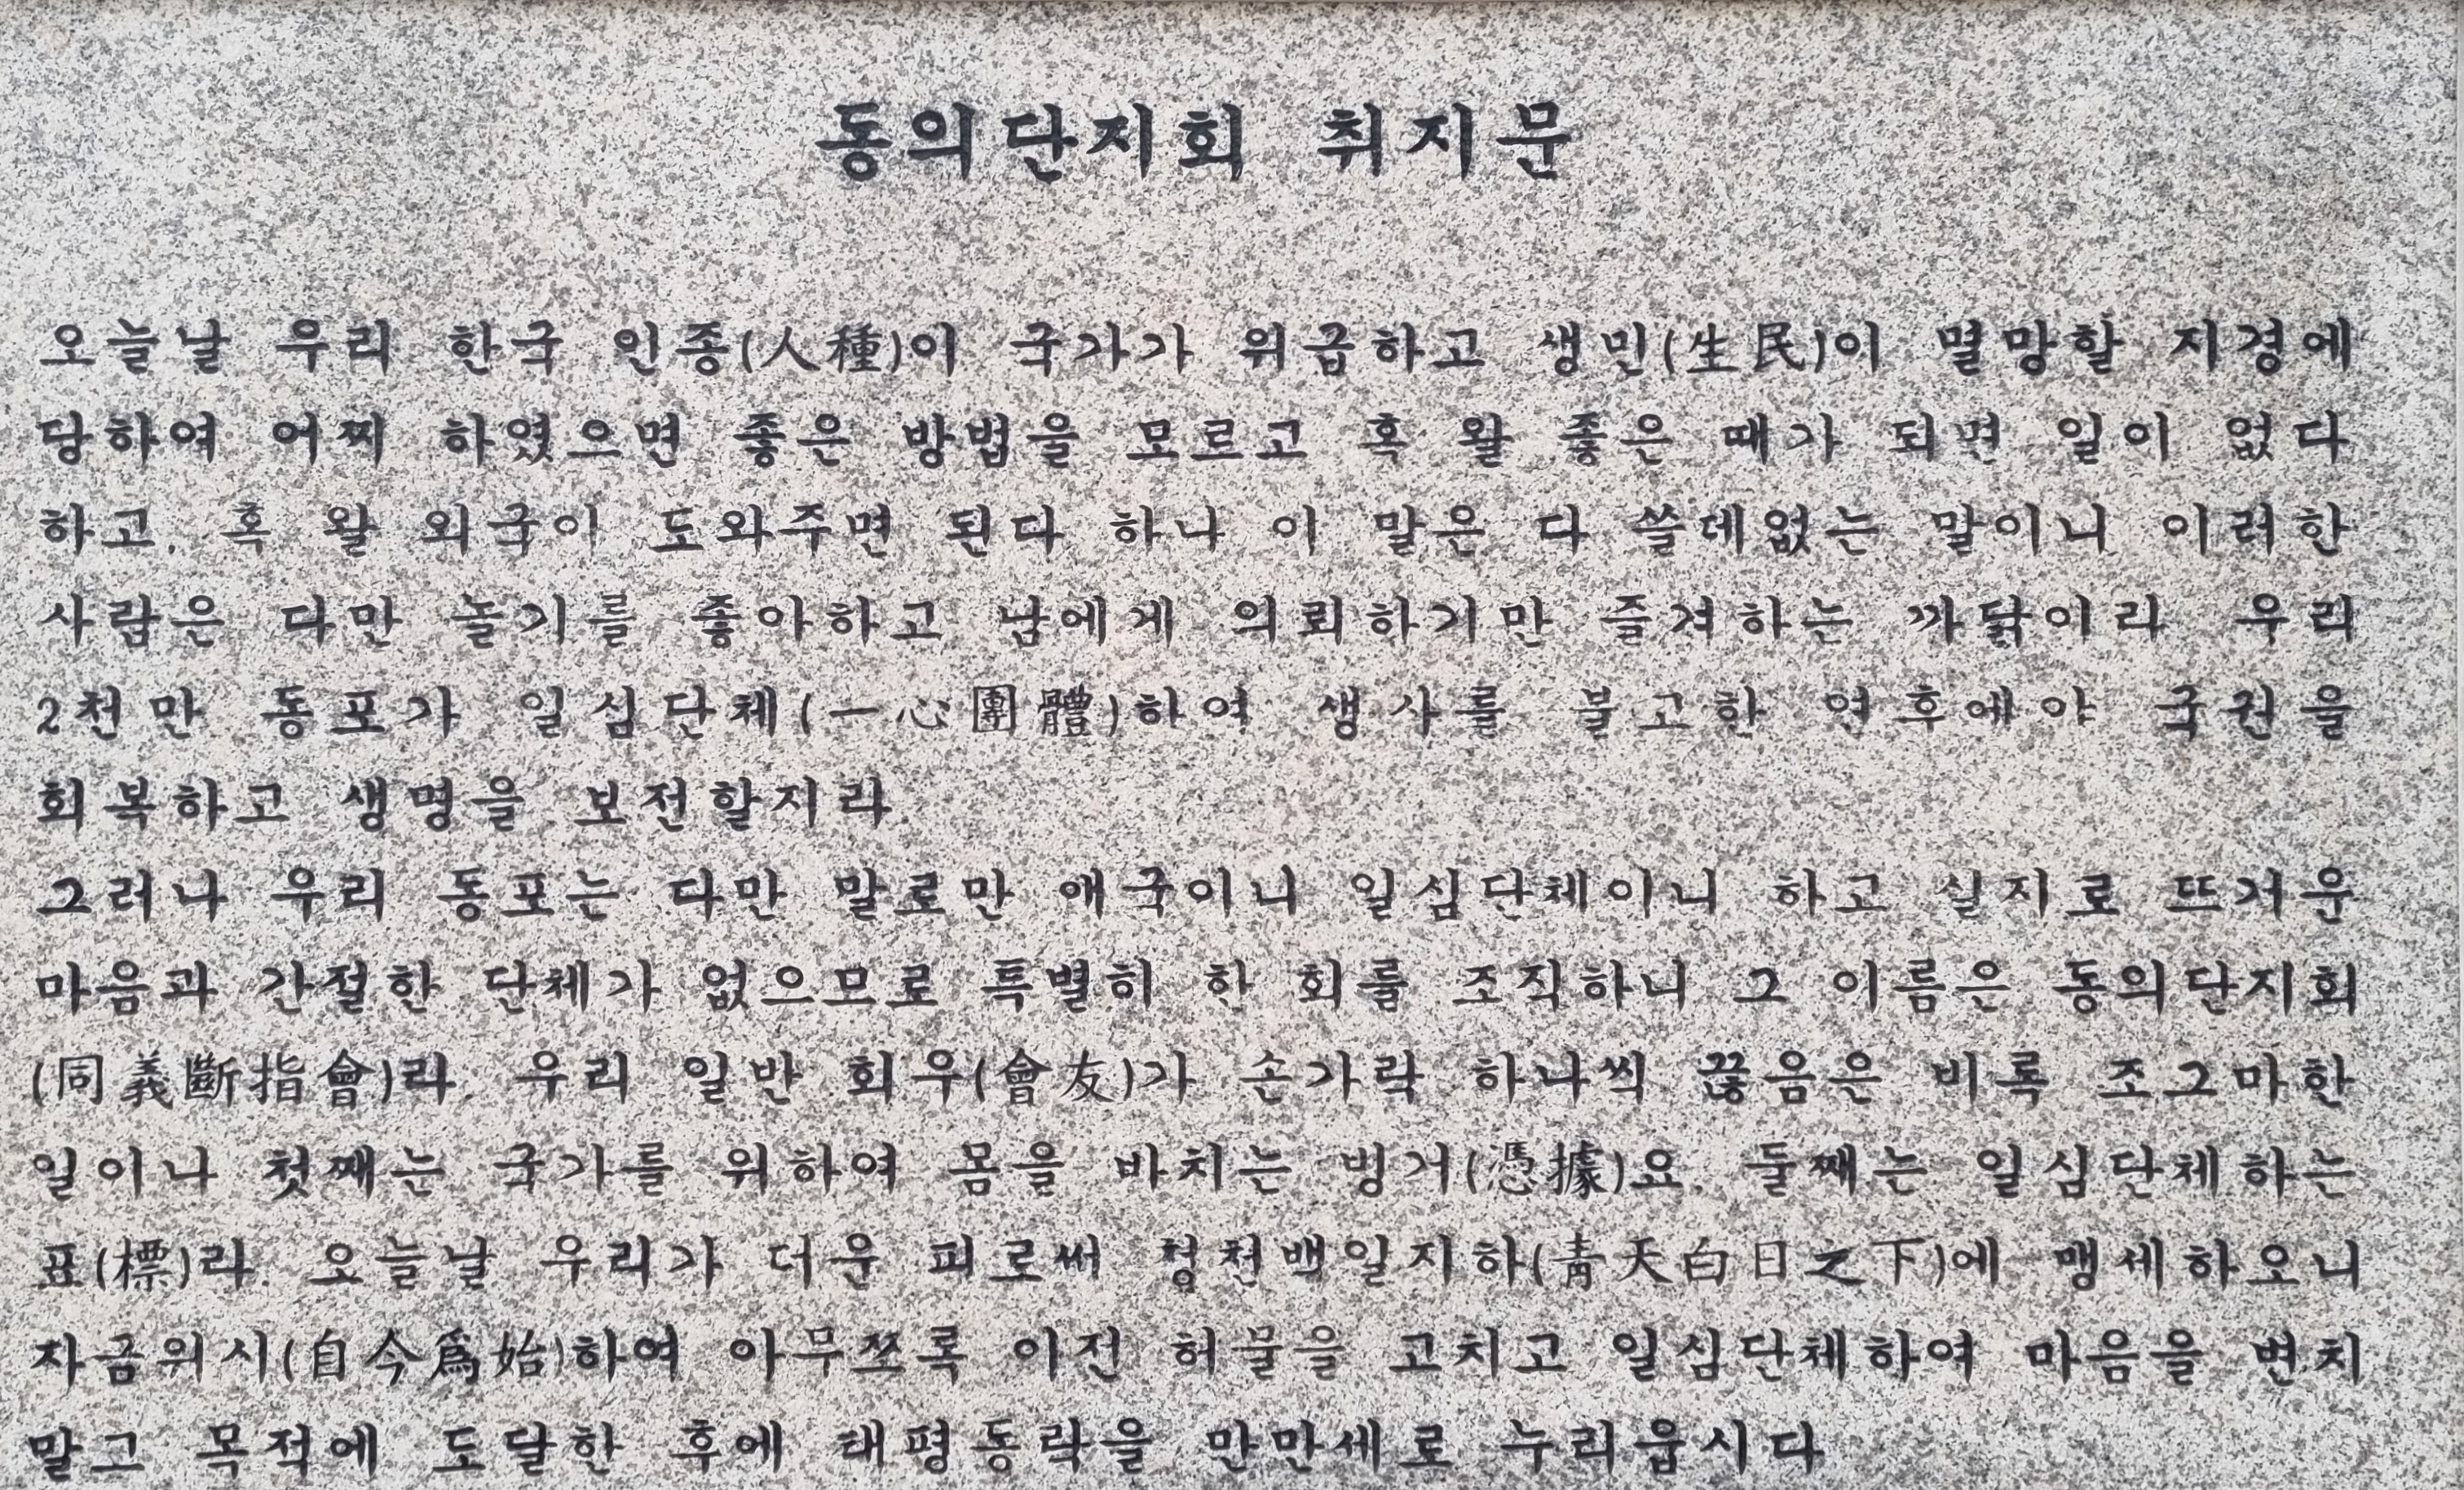 동의단지회 취지문
오늘날 우리 한국 인종(人種)이 국가가 위급하고 생민(生民)이 멸망할 지경에
당하여 어찌 하였으면 좋은 방법을 모르고 혹 왈 좋은 때가 되면 일이 없다
하고, 혹 왈 외국이 도와주면 된다 하나 이 말은 다 쓸데없는 말이니 이러한
사람은 다만 놀기를 좋아하고 남에게 의뢰하기만 즐겨하는 까닭이라 우리
2천만 동포가 일심단체(一心團體)하여 생사를 불고한 연후에야 국권을
회복하고 생명을 보전할지라
그러나 우리 동포는 다만 말로만 애국이니 일심단체이니 하고 실지로 뜨거운
마음과 간절한 단체가 없으므로 특별히 한 회를 조직하니 그 이름은 동의단지회
(同義斷指會)라. 우리 일반 회우(會友)가 손가락 하나씩 끊음은 비록 조그마한
일이나 첫째는 국가를 위하여 몸을 바치는 빙거(憑據)요, 둘째는 일심단체하는
표(標)라. 오늘날 우리가 더운 피로써 청천백일지하(靑天白日之下)에 맹세하오니
자금위시(自今爲始)하여 아무쪼록 이전 허물을 고치고 일심단체하여 마음을 변치
말고 목적에 도달한 후에 태평동락을 만만세로 누리옵시다